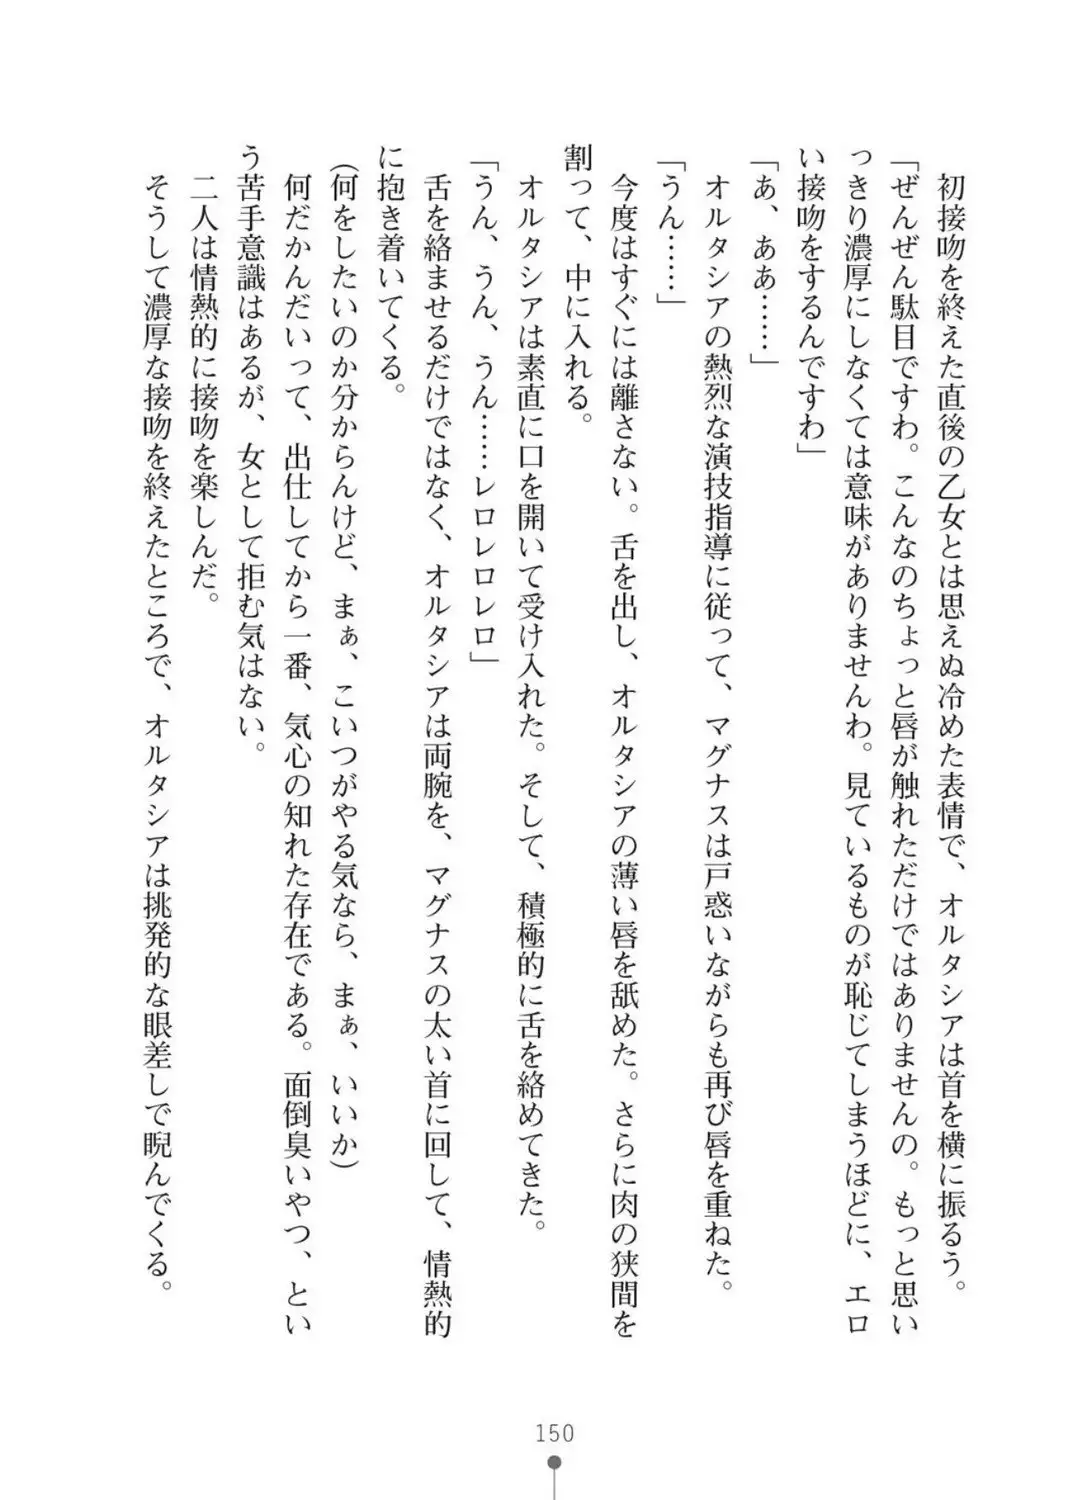 初接吻を終えた直後の乙女とは思えぬ冷めた表情で、オルタシアは首を横に振るう。
「ぜんぜん駄目ですわ。こんなのちょっと唇が触れただけではありませんの。もっと思い
っきり濃厚にしなくては意味がありませんわ。見ているものが恥じてしまうほどに、エロ
い接吻をするんですわ」
「あ、ああ……」
オルタシアの熱烈な演技指導に従って、マグナスは戸惑いながらも再び唇を重ねた。
「うん……」
今度はすぐには離さない。舌を出し、オルタシアの薄い唇を舐めた。さらに肉の狭間を
割って、中に入れる。
オルタシアは素直に口を開いて受け入れた。そして、積極的に舌を絡めてきた。
「うん、うん、うん……レロレロレロ」
舌を絡ませるだけではなく、オルタシアは両腕を、マグナスの太い首に回して、情熱的
に抱き着いてくる。
(何をしたいのか分からんけど、まぁ、こいつがやる気なら、まぁ、いいか)
何だかんだいって、出仕してから一番、気心の知れた存在である。面倒臭いやつ、とい
う苦手意識はあるが、女として拒む気はない。
二人は情熱的に接吻を楽しんだ。
そうして濃厚な接吻を終えたところで、オルタシアは挑発的な眼差しで睨んでくる。
150